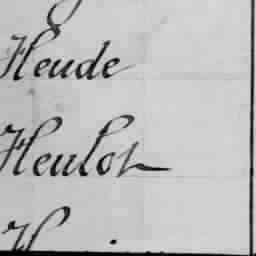 Heude
Heulot